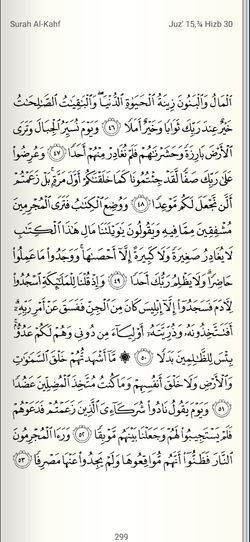 Surah Al-Kahf
Juz' 15,¾ Hizb 30
ٱلْمَالُ وَٱلْبَنُونَ زِينَةُ ٱلْحَيَوٰةِ ٱلدُّنْيَا ۖ وَٱلْبَٰقِيَٰتُ ٱلصَّٰلِحَٰتُ
خَيْرٌ عِندَ رَبِّكَ ثَوَابًا وَخَيْرٌ أَمَلًا ٤٦ وَيَوْمَ نُسَيِّرُ ٱلْجِبَالَ وَتَرَى
ٱلْأَرْضَ بَارِزَةً وَحَشَرْنَٰهُمْ فَلَمْ نُغَادِرْ مِنْهُمْ أَحَدًا ٤٧ وَعُرِضُوا۟
عَلَىٰ رَبِّكَ صَفًّا لَّقَدْ جِئْتُمُونَا كَمَا خَلَقْنَٰكُمْ أَوَّلَ مَرَّةٍۭ ۚ بَلْ زَعَمْتُمْ
أَلَّن نَّجْعَلَ لَكُم مَّوْعِدًا ٤٨ وَوُضِعَ ٱلْكِتَٰبُ فَتَرَى ٱلْمُجْرِمِينَ
مُشْفِقِينَ مِمَّا فِيهِ وَيَقُولُونَ يَٰوَيْلَتَنَا مَالِ هَٰذَا ٱلْكِتَٰبِ
لَا يُغَادِرُ صَغِيرَةً وَلَا كَبِيرَةً إِلَّآ أَحْصَىٰهَا ۚ وَوَجَدُوا۟ مَا عَمِلُوا۟
حَاضِرًا ۗ وَلَا يَظْلِمُ رَبُّكَ أَحَدًا ٤٩ وَإِذْ قُلْنَا لِلْمَلَٰٓئِكَةِ ٱسْجُدُوا۟
لِءَادَمَ فَسَجَدُوٓا۟ إِلَّآ إِبْلِيسَ كَانَ مِنَ ٱلْجِنِّ فَفَسَقَ عَنْ أَمْرِ رَبِّهِۦٓ ۗ
أَفَتَتَّخِذُونَهُۥ وَذُرِّيَّتَهُۥٓ أَوْلِيَآءَ مِن دُونِى وَهُمْ لَكُمْ عَدُوٌّۢ ۚ
بِئْسَ لِلظَّٰلِمِينَ بَدَلًا ٥٠ ۞ مَّآ أَشْهَدتُّهُمْ خَلْقَ ٱلسَّمَٰوَٰتِ
وَٱلْأَرْضِ وَلَا خَلْقَ أَنفُسِهِمْ وَمَا كُنتُ مُتَّخِذَ ٱلْمُضِلِّينَ عَضُدًا
٥١ وَيَوْمَ يَقُولُ نَادُوا۟ شُرَكَآءِىَ ٱلَّذِينَ زَعَمْتُمْ فَدَعَوْهُمْ
فَلَمْ يَسْتَجِيبُوا۟ لَهُمْ وَجَعَلْنَا بَيْنَهُم مَّوْبِقًا ٥٢ وَرَءَا ٱلْمُجْرِمُونَ
ٱلنَّارَ فَظَنُّوٓا۟ أَنَّهُم مُّوَاقِعُوهَا وَلَمْ يَجِدُوا۟ عَنْهَا مَصْرِفًا ٥٣
299